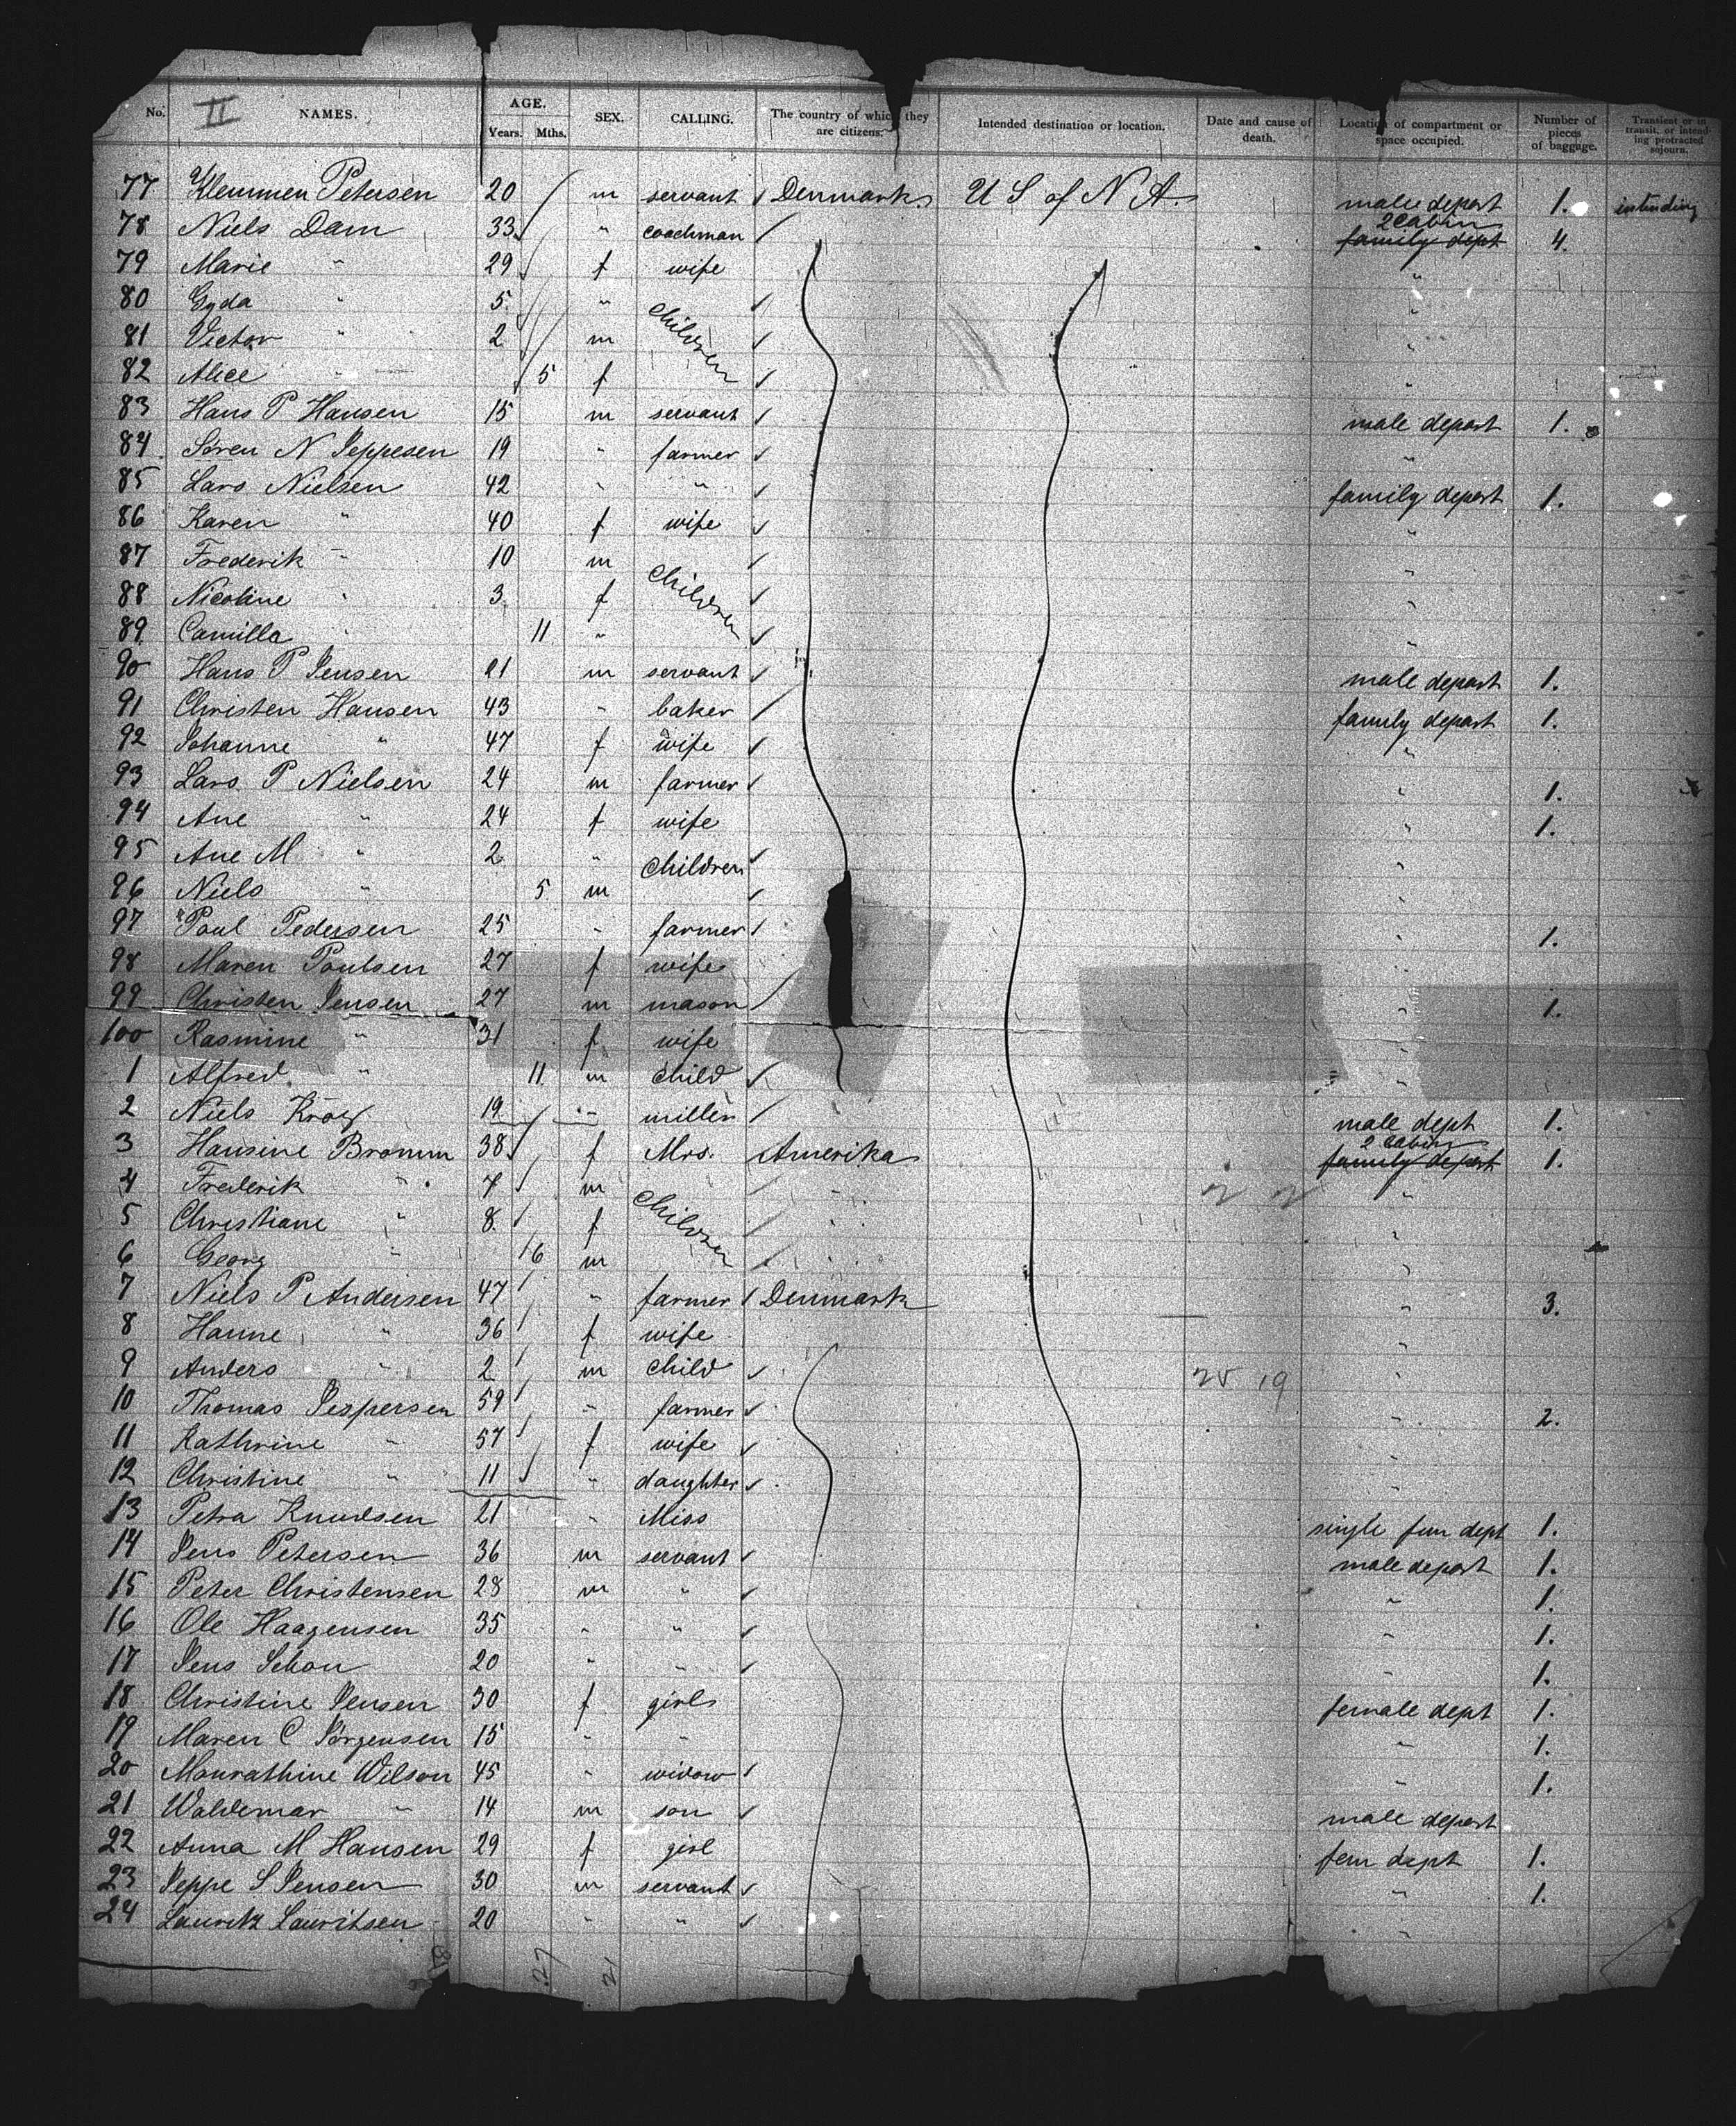 No. II NAMES. AGE. Years. Mths. SEX. CALLING. The country of which they are citizens. Intended destination or location. Date and cause of death. Location of compartment or space occupied. Number of pieces of baggage. Transient or in transit, or intending protracted sojourn.
77 Klemmen Petersen 20 m servant Denmark U S of N A. male depart 1. intending
78 Niels Dam 33 " coachman 2 cabin family dept 4.
79 Marie " 29 f wife "
80 Gyda " 5 " Children "
81 Victor " 2 m "
82 Alice " 5 f "
83 Hans P Hansen 15 m servant male depart 1.
84 Sören N Jeppesen 19 " farmer "
85 Lars Nielsen 42 " " family depart 1.
86 Karen " 40 f wife "
87 Frederik " 10 m Children "
88 Nicoline " 3 f "
89 Camilla " 11 " "
90 Hans P Jensen 21 m servant male depart 1.
91 Christen Hansen 43 " baker family depart 1.
92 Johanne " 47 f wife "
93 Lars P Nielsen 24 m farmer " 1.
94 Ane " 24 f wife " 1.
95 Ane M " 2 " Children "
96 Niels " 5 m "
97 Poul Pedersen 25 " farmer " 1.
98 Maren Poulsen 27 f wife "
99 Christen Jensen 27 m mason " 1.
100 Rasmine " 31 f wife "
1 Alfred " 11 m child "
2 Niels Krog 19 " miller male dept 1.
3 Hansine Bromm 38 f Mrs. Amerika 2 cabin family depart 1.
4 Frederik " 7 m Children " "
5 Christiane " 8 f " "
6 Georg " 6 m " "
7 Niels P Andersen 47 " farmer Denmark " 3.
8 Hanne " 36 f wife "
9 Anders " 2 m child "
10 Thomas Jespersen 59 " farmer " 2.
11 Kathrine " 57 f wife "
12 Christine " 11 " daughter "
13 Petra Knudsen 21 " Miss single fem dept 1.
14 Jens Petersen 36 m servant male depart 1.
15 Peter Christensen 28 m " " 1.
16 Ole Haagensen 35 " " " 1.
17 Jens Schou 20 " " " 1.
18 Christine Jensen 30 f girls female dept 1.
19 Maren C Jörgensen 15 " " " 1.
20 Mourathine Wilson 45 " widow " 1.
21 Waldemar " 14 m son male depart
22 Anna M Hansen 29 f girl fem dept 1.
23 Jeppe S Jensen 30 m servant " 1.
24 Lauritz Lauritsen 20 " " "